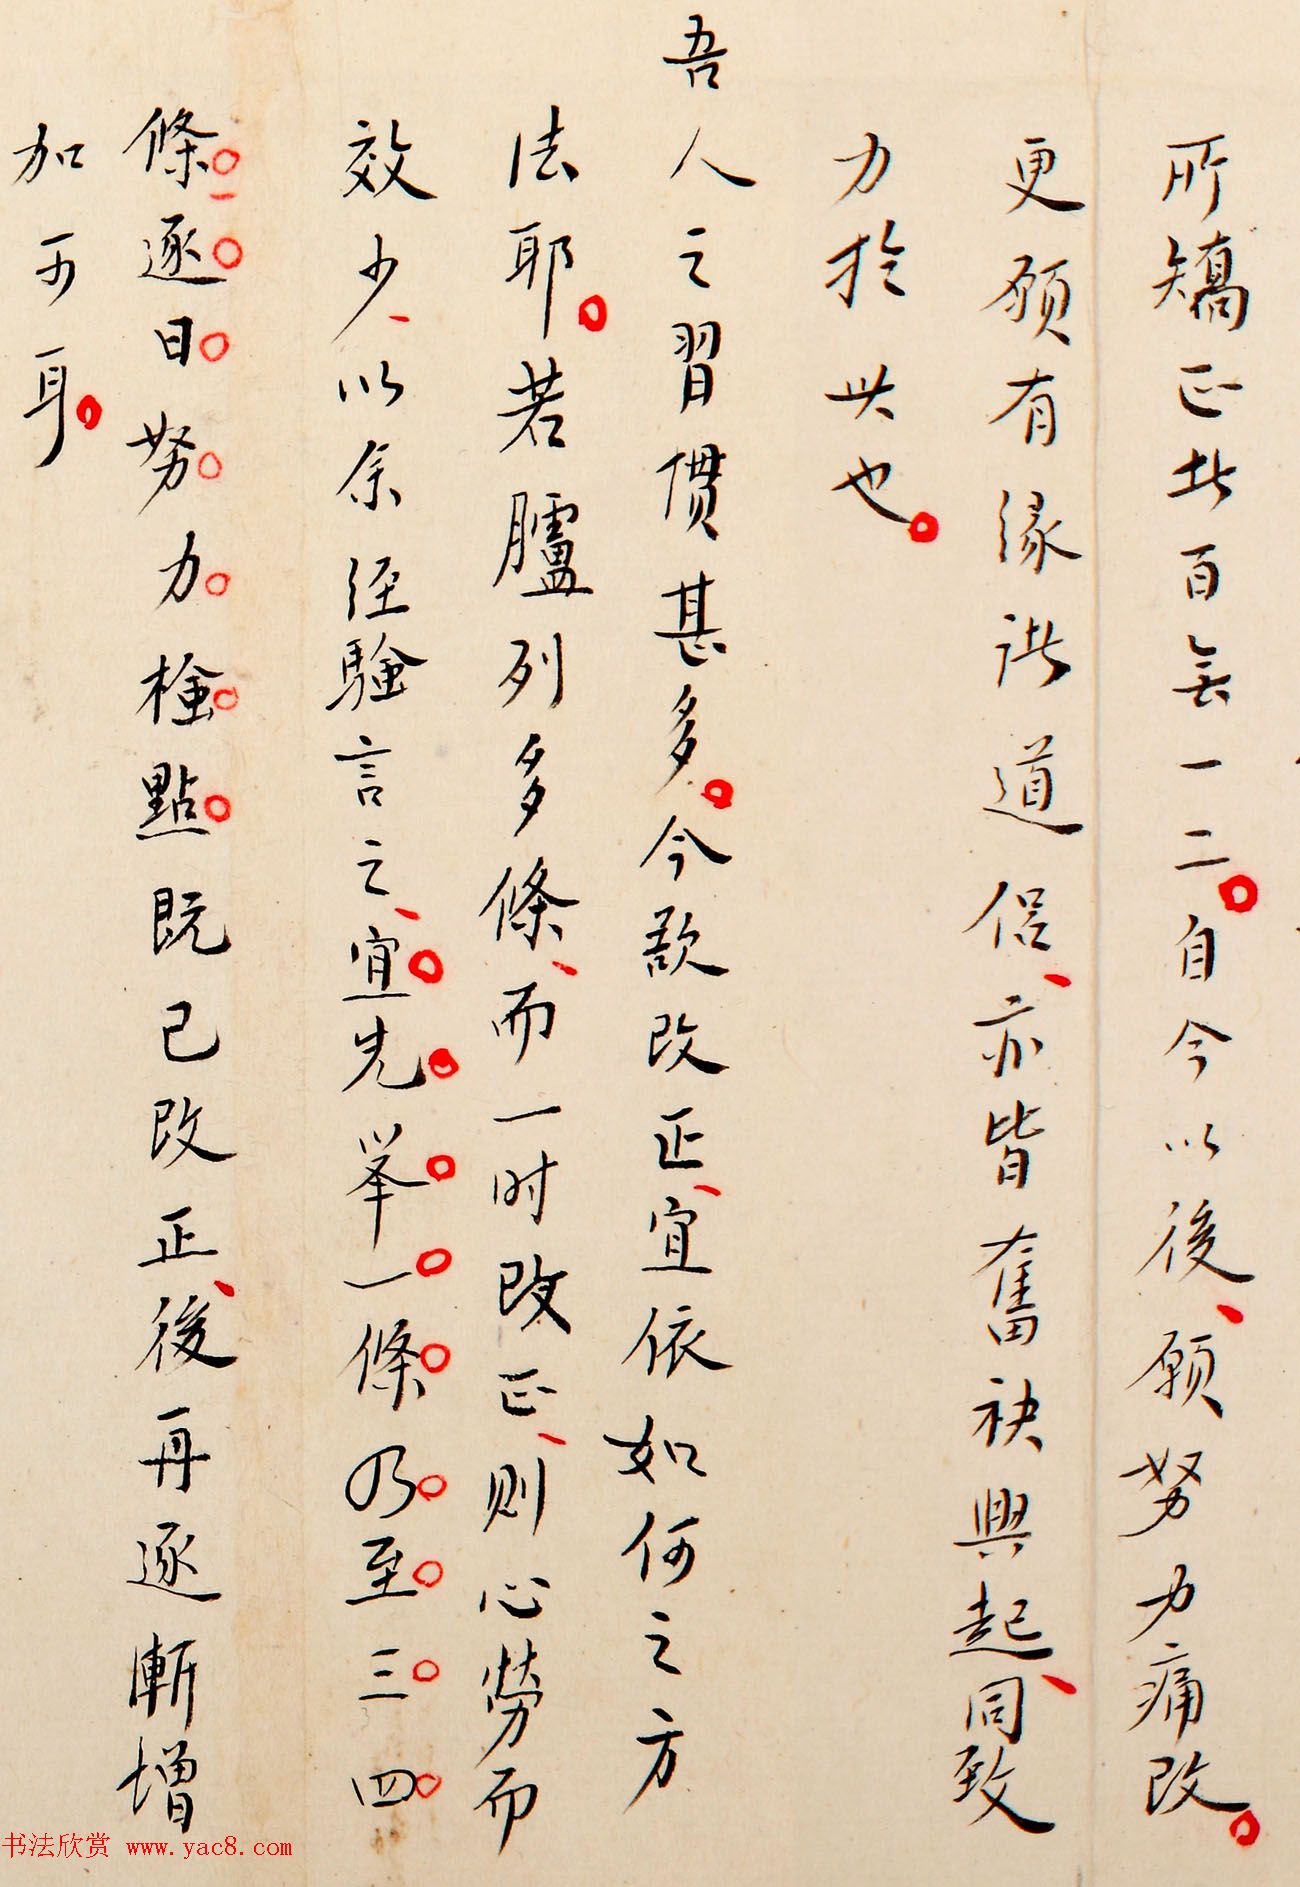 所矯正者百無一二。自今以後、願努力痛改。
更願有緣諸道侶、亦皆奮袂興起、同致
力於此也。
吾人之習慣甚多。今欲改正、宜依如何之方
法耶。若臚列多條、而一時改正、則心勞而
效少、以余經驗言之、宜先舉一條乃至三四
條逐日努力檢點既已改正、後再逐漸增
加可耳。
书法欣赏 www.yac8.com